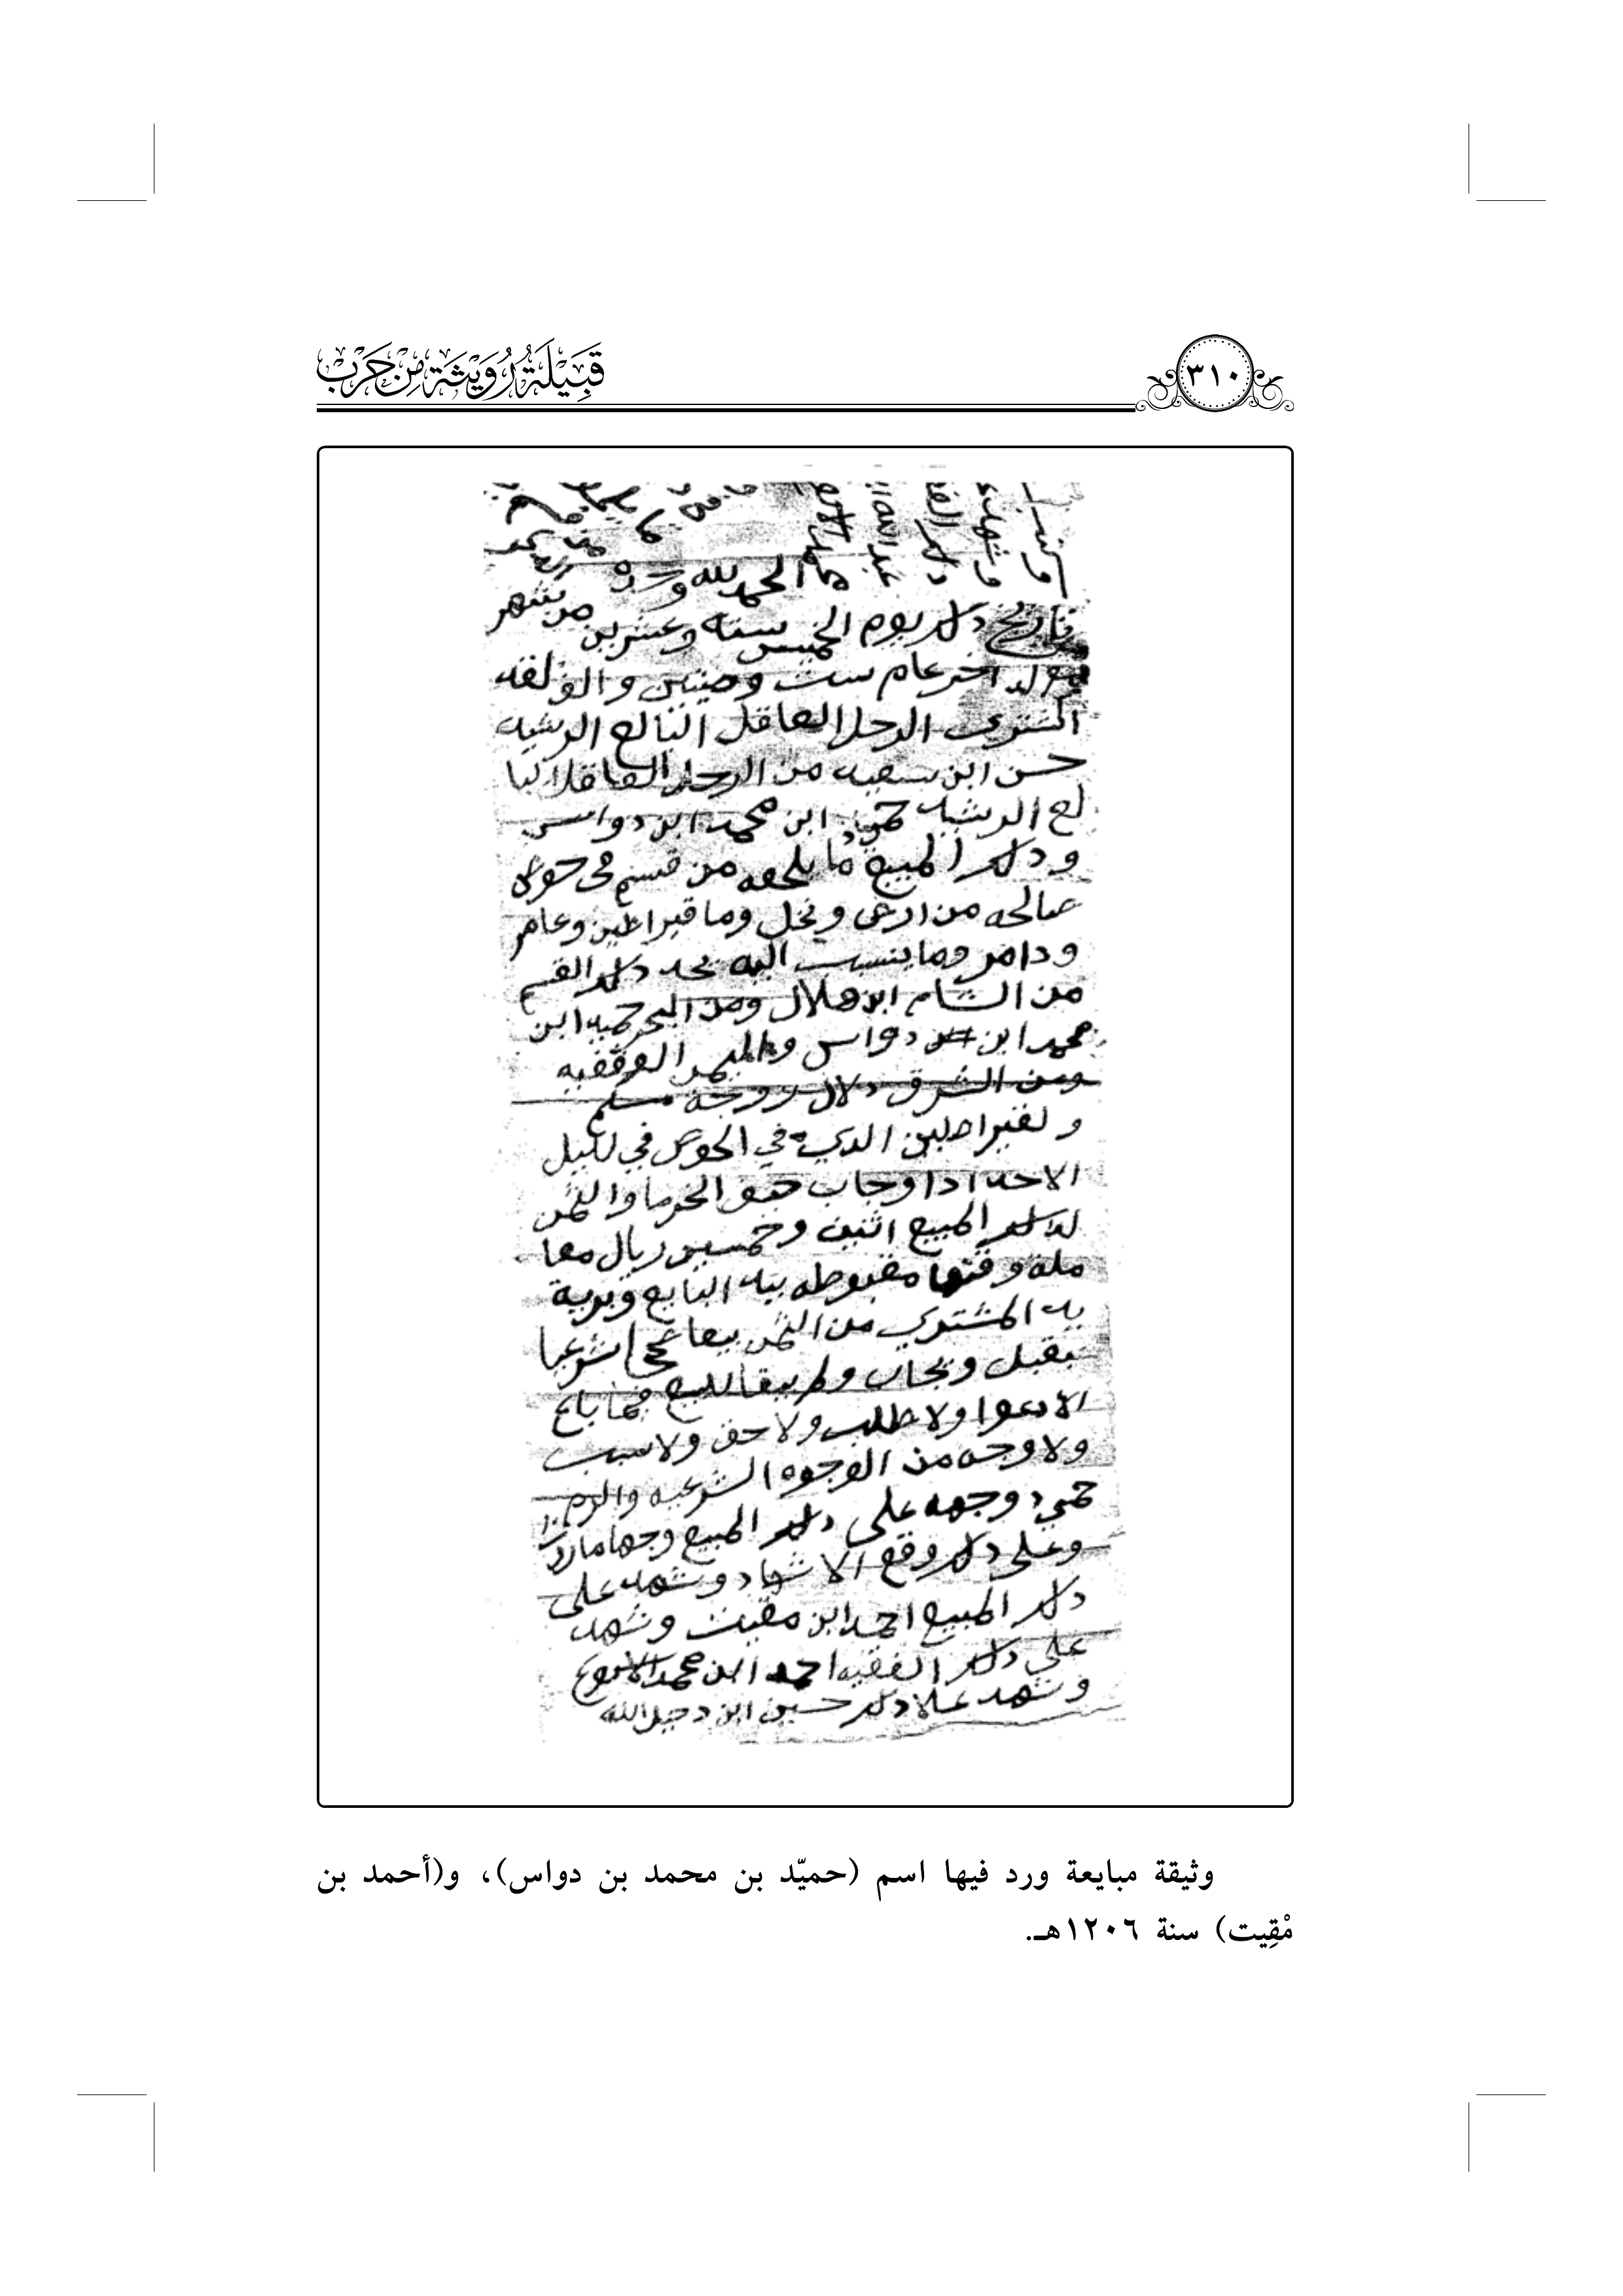 ٣١٠
قَبِيلَة رُوَيْثَة مِنْ حَرْب
الحمد لله وحده
تاريخ ذلك يوم الخميس سته وعشرين من شهر
اخر عام ست وميتين والف لقد
اشترى الرجل العاقل البالغ الرشيد
حسن ابن سعيد من الرجل العاقل البا
لغ الرشيد حميد ابن محمد ابن دواس
وذلك المبيع ما يلحقه من قسم في حوض
صالحه من ارض ونخل وما قيراطين وعامر
ودامر وما ينسب اليه يحد ذلك القسم
من الشام ابن هلال ومن البحر حميد ابن
محمد ابن دواس واليمن الوقفيه
ومن الشرق دلال زوجة مسلم
ولقيراطين الذي في الحوض في لليل
الاحد اذا وجاب الخرما والثمن
لذلك المبيع اثنين وخمسين ريال معا
مله وقتها مقبوضه بيد البايع وبرية
يد المشتري من الثمن بيعا صحيحا شرعيا
بقبل ويجاب وطريقا للبيع فيما باع
لا دعوا ولا طلب ولا حق ولا سبب
ولا وجه من الوجوه الشرعيه والزم
حميد وجهه على ذلك المبيع وجها مارد
وعلى ذلك وقع الاشهاد وشهد على
ذلك المبيع احمد ابن مقيت وشهد
على ذلك الفقيه احمد ابن محمد
وشهد علا ذلك حسين ابن دخيل الله
وثيقة مبايعة ورد فيها اسم (حميّد بن محمد بن دواس)، و(أحمد بن
مْقِيت) سنة ١٢٠٦هـ.